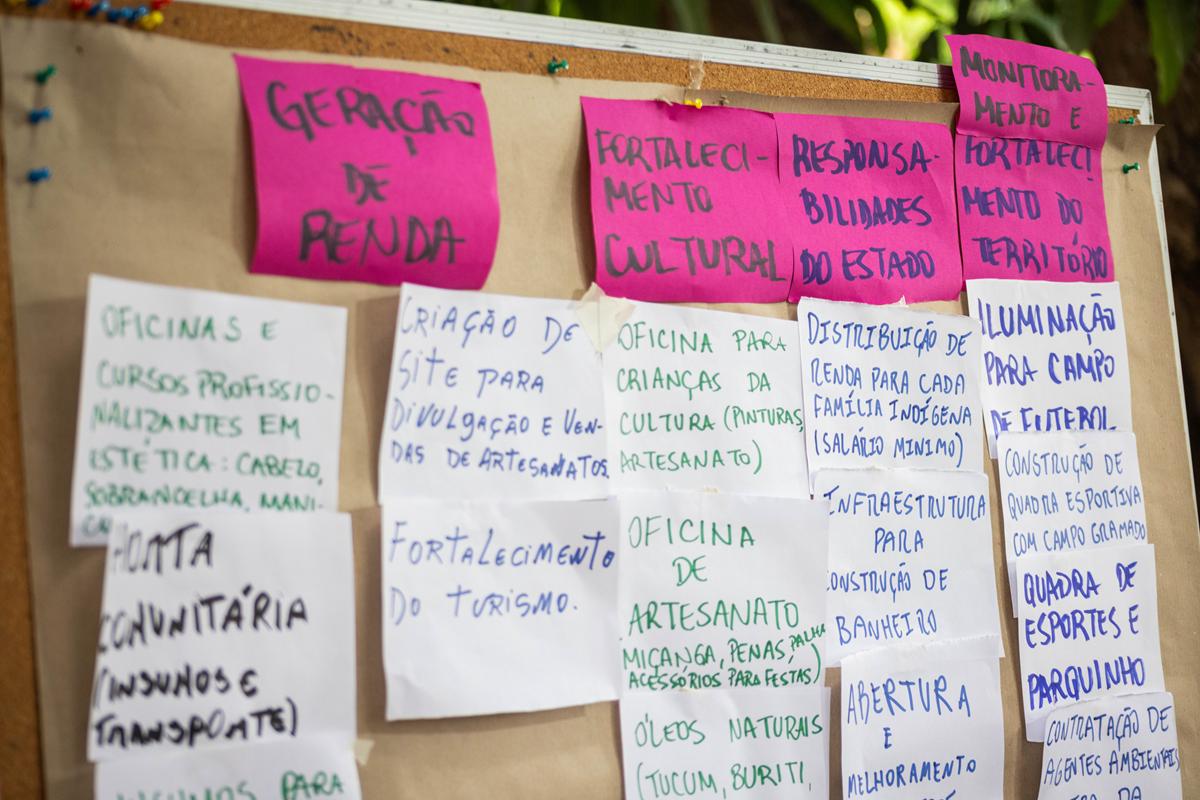 GERAÇÃO
DE
RENDA
OFICINAS E
CURSOS PROFISSIO-
NALIZANTES EM
ESTÉTICA: CABELO,
SOBRANCELHA, MANI-
HORTA
COMUNITÁRIA
(INSUMOS E
TRANSPORTE)
PARA
CRIAÇÃO DE
SITE PARA
DIVULGAÇÃO E VEN-
DAS DE ARTESANATOS
FORTALECIMENTO
DO TURISMO.
FORTALECI-
MENTO
CULTURAL
OFICINA PARA
CRIANÇAS DA
CULTURA (PINTURAS,
ARTESANATO)
OFICINA
DE
ARTESANATO
MIÇANGA, PENAS, PALHA
ACESSÓRIOS PARA FESTAS)
ÓLEOS NATURAIS
(TUCUM, BURITI,
RESPONSA-
BILIDADES
DO ESTADO
DISTRIBUIÇÃO DE
RENDA PARA CADA
FAMÍLIA INDÍGENA
(SALÁRIO MINIMO)
INFRAESTRUTURA
PARA
CONSTRUÇÃO DE
BANHEIRO
ABERTURA
E
MELHORAMENTO
MONITORA-
MENTO E
FORTALECI
MENTO DO
TERRITÓRIO
ILUMINAÇÃO
PARA CAMPO
DE FUTEBOL
CONSTRUÇÃO DE
QUADRA ESPORTIVA
COM CAMPO GRAMADO
QUADRA DE
ESPORTES E
PARQUINHO
CONTRATAÇÃO DE
AGENTES AMBIENTAIS
DA